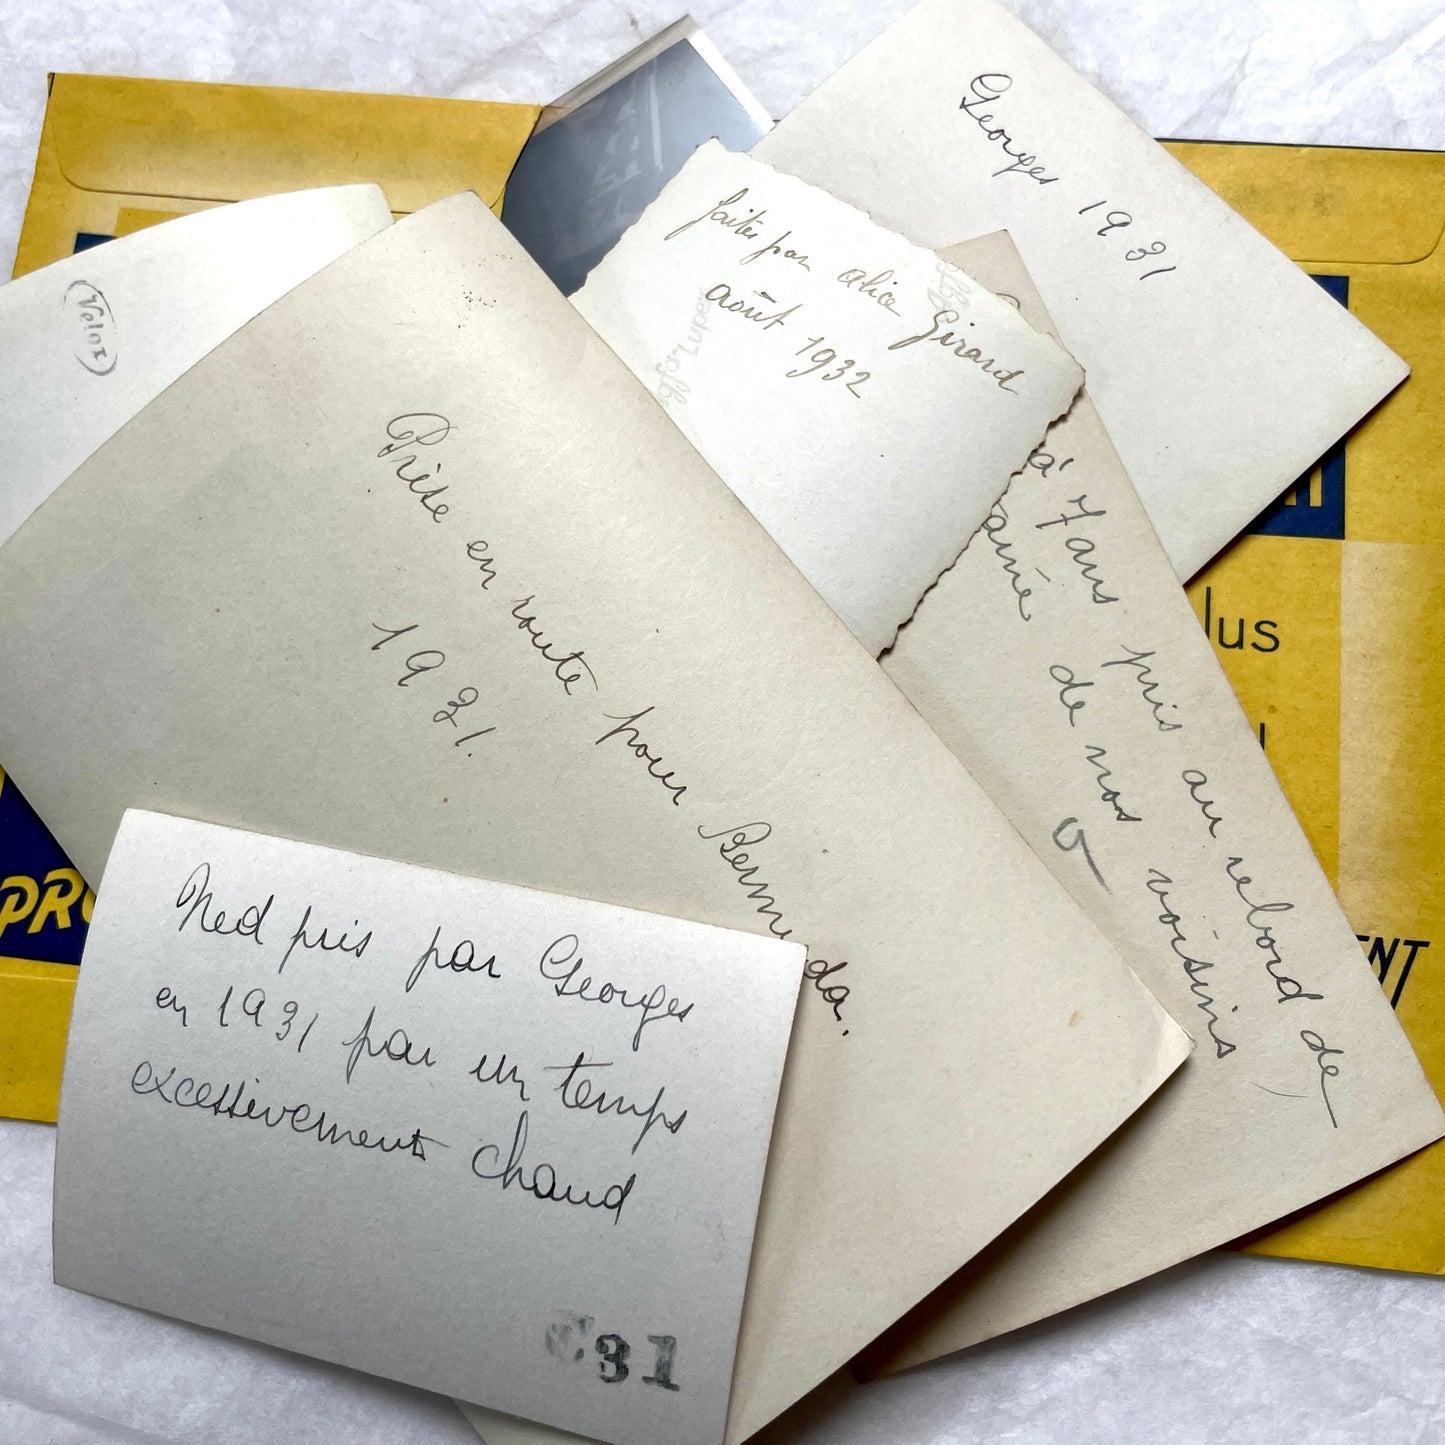 Georges 1931
faites par Alice Girard
août 1932
Agfa Lupex
Velox
Prise en route pour Bermuda.
1931.
à 7 ans pris au rebord de
de nos voisins
Ned pris par Georges
en 1931 par un temps
excessivement chaud
31
lus
PR
NT